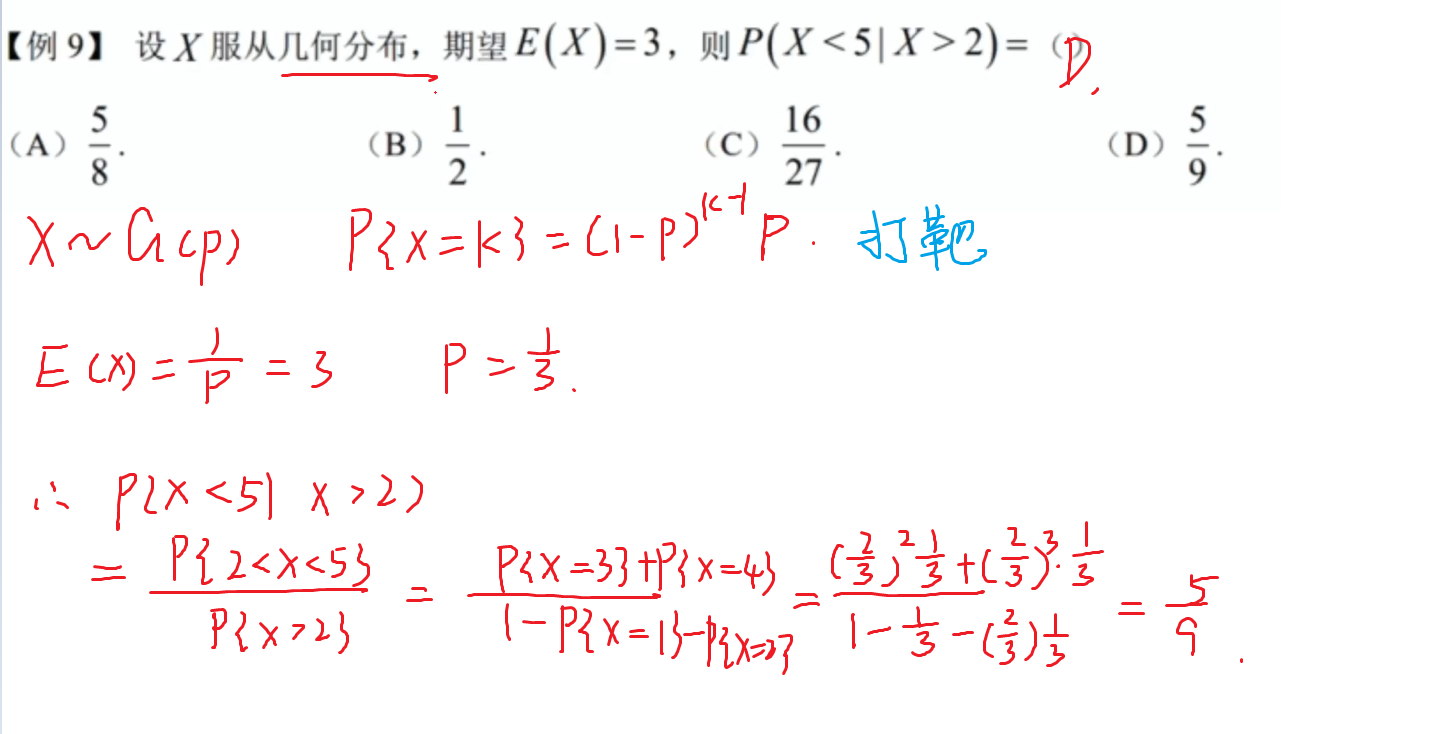 【例 9】 设 X 服从几何分布，期望 E(X)=3，则 P(X<5|X>2)= ( D. )
(A) 5/8. (B) 1/2. (C) 16/27. (D) 5/9.
X~G(p) P{X=k}=(1-p)^{k-1} p. 打靶
E(X)=1/p=3 p=1/3.
∴ P{X<5| X>2}
= P{2<X<5}/P{X>2} = (P{X=3}+P{X=4})/(1-P{X=1}-P{X=2}) = ((2/3)^2 1/3+(2/3)^3·1/3)/(1-1/3-(2/3)1/3) = 5/9.